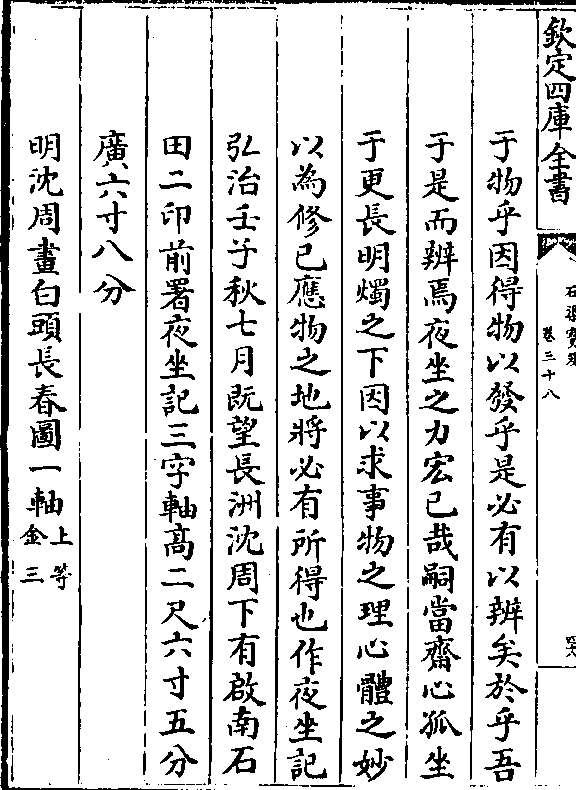 欽定四庫全書
石渠寶笈
卷三十八
于物乎因得物以發乎是必有以辨矣於乎吾
于是而辨焉夜坐之力宏已哉嗣當齋心孤坐
于更長明燭之下因以求事物之理心體之妙
以為修已應物之地將必有所得也作夜坐記
弘治壬子秋七月既望長洲沈周下有啟南石
田二印前署夜坐記三字軸高二尺六寸五分
廣六寸八分
明沈周畫白頭長春圖一軸上等
金三